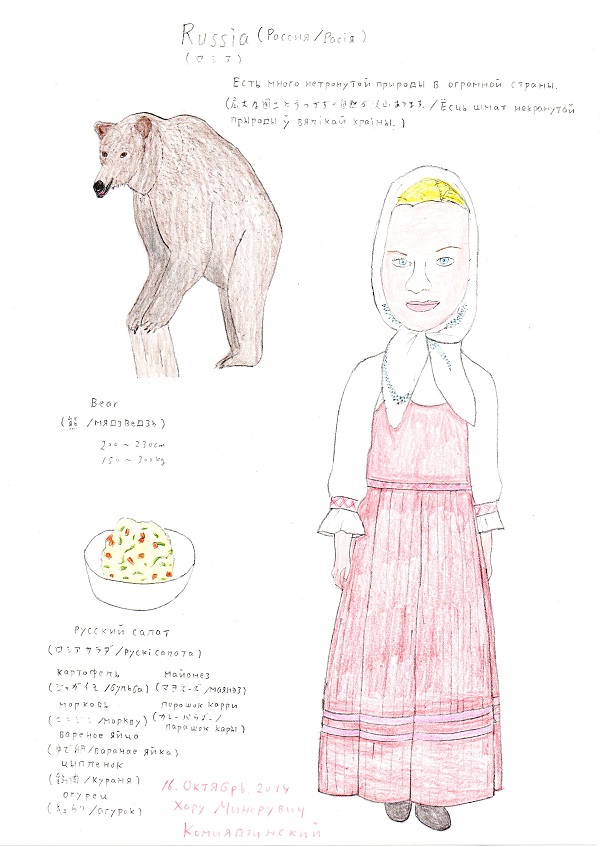 Russia (Россия/Расія)
(ロシア)
Есть много нетронутой природы в огромной страны.
(広大な国土に手つかずの自然が沢山あります。/Ёсць шмат некранутай
прыроды ў вялікай краіны.)
Bear
(熊/мядзведзь)
200~230cm
150~300kg
Русский салат
(ロシアサラダ/рускі салата)
картофель
(ジャガイモ/бульба)
морковь
(ニンジン/моркву)
вареное яйцо
(ゆで卵/варанае яйка)
цыпленок
(鶏肉/кураня)
огурец
(きゅうり/агурок)
майонез
(マヨネーズ/маянэз)
порошок карри
(カレーパウダー/
парашок кары)
16. Октябрь. 2014
Хару Минорувич